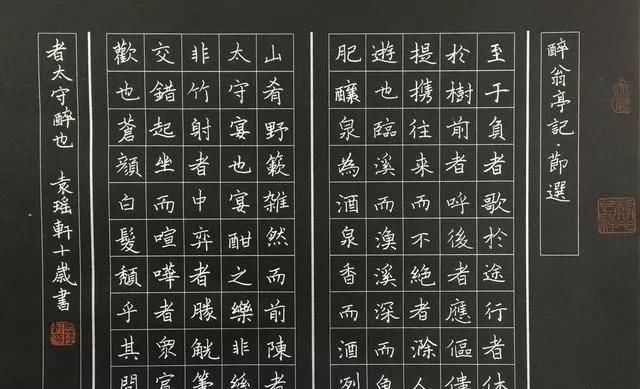 醉翁亭記·節選
至于負者歌於途行者休
於樹前者呼後者應傴僂
提携往來而不絕者滁人
遊也臨溪而漁溪深而魚
肥釀泉為酒泉香而酒列
山肴野簌雜然而前陳者
太守宴也宴酣之樂非絲
非竹射者中弈者勝觥籌
交錯起坐而喧嘩者眾賓
歡也蒼顔白髮頹乎其間
者太守醉也 袁瑤軒十歲書